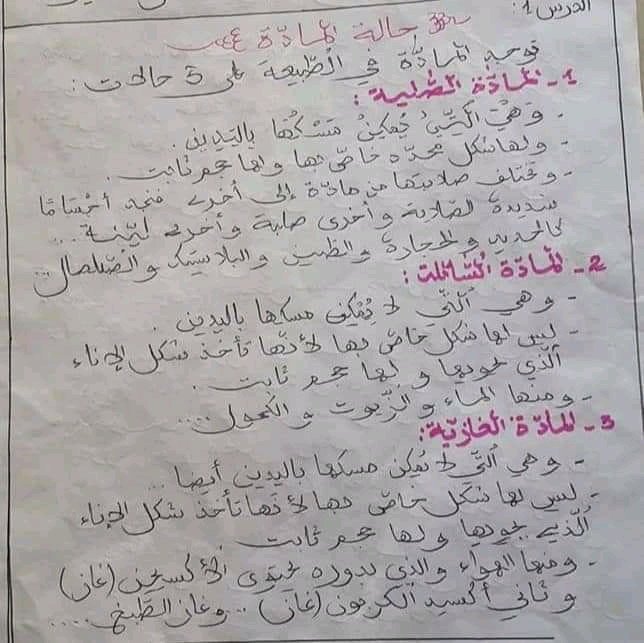 الدرس 1:
حالة المادّة
توجد المادّة في الطّبيعة على 3 حالات:
1- المادّة الصّلبة:
- وهي الّتي يُمكن مَسْكُها باليَدين.
- ولها شكل محدّد خاصّ بها ولها حجم ثابت.
- وتختلف صلابتها من مادّة إلى أخرى فنجد أجْسَامًا
شديدة الصّلابة وأخرى صلبة وأخرى ليّنة...
كالحديد والحجارة والطّين والبلاستيك والصّلصال...
2- المادّة السّائلة:
- وهي الّتي لا يُمكن مسكها باليدين.
- ليس لها شكل خاصّ بها لأنّها تأخذ شكل الإناء
الّذي يحويها ولها حجم ثابت.
- ومنها الماء والزّيوت والكحول....
3- المادّة الغازيّة:
- وهي الّتي لا يمكن مسكها باليدين أيضا...
- ليس لها شكل خاصّ بها لأنّها تأخذ شكل الإناء
الّذي يحويها ولها حجم ثابت
- ومنها الهواء والذي بدوره يحتوي الأكسجين (غاز)
و ثاني أكسيد الكربون (غاز)... وغاز الطّبخ....